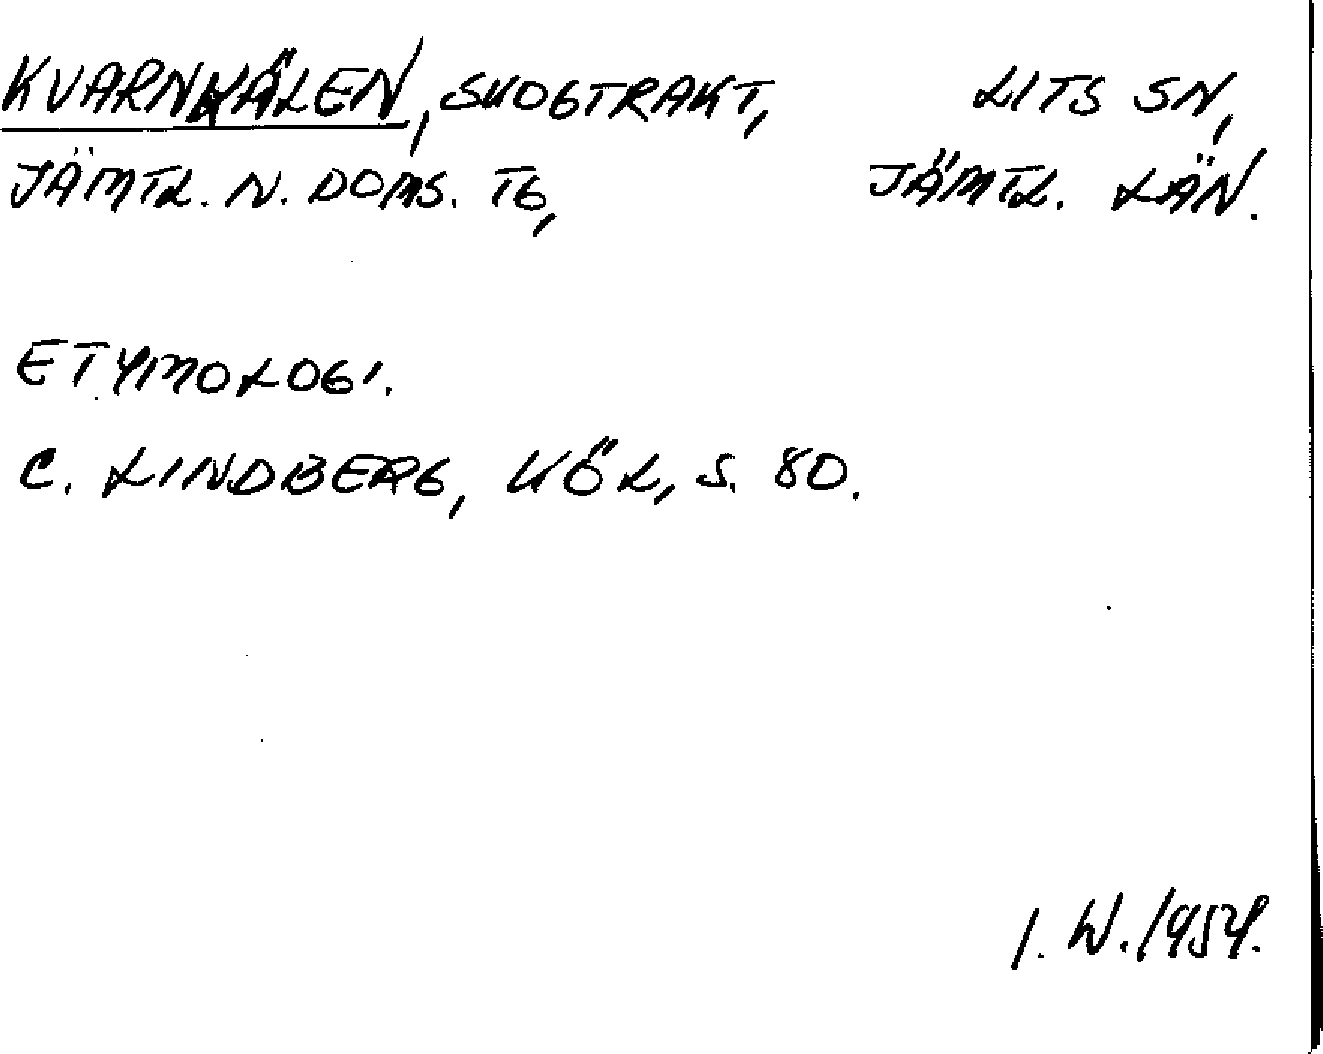 KVARNKÄLEN, SKOGTRAKT, LITS SN,
JÄMTL. N. DOMS. TG, JÄMTL. LÄN.
ETYMOLOGI.
C. LINDBERG, KÖL, S. 80.
I. W. 1954.